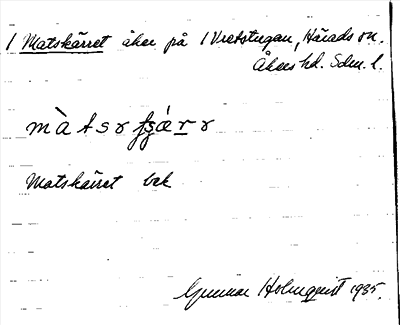 1 Matskärret åker på 1 Vretstugan, Härads sn.
Åkers hd. Sdm. l.
Matskärret bek
Gunnar Holmquist 1935.